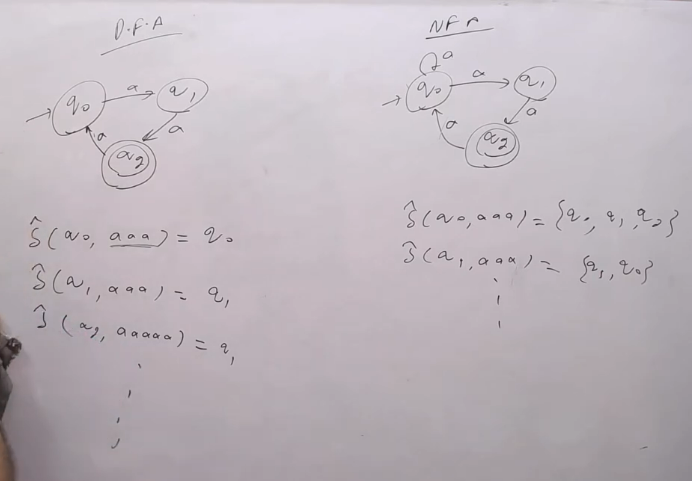 D.F.A
q0 a q1
a a
q2
δ̂(q0, aaa) = q0
δ̂(q1, aaa) = q1
δ̂(q2, aaaaa) = q1
NFA
a
q0 a q1
a a
q2
δ̂(q0, aaa) = {q0, q1, q2}
δ̂(q1, aaa) = {q1, q0}